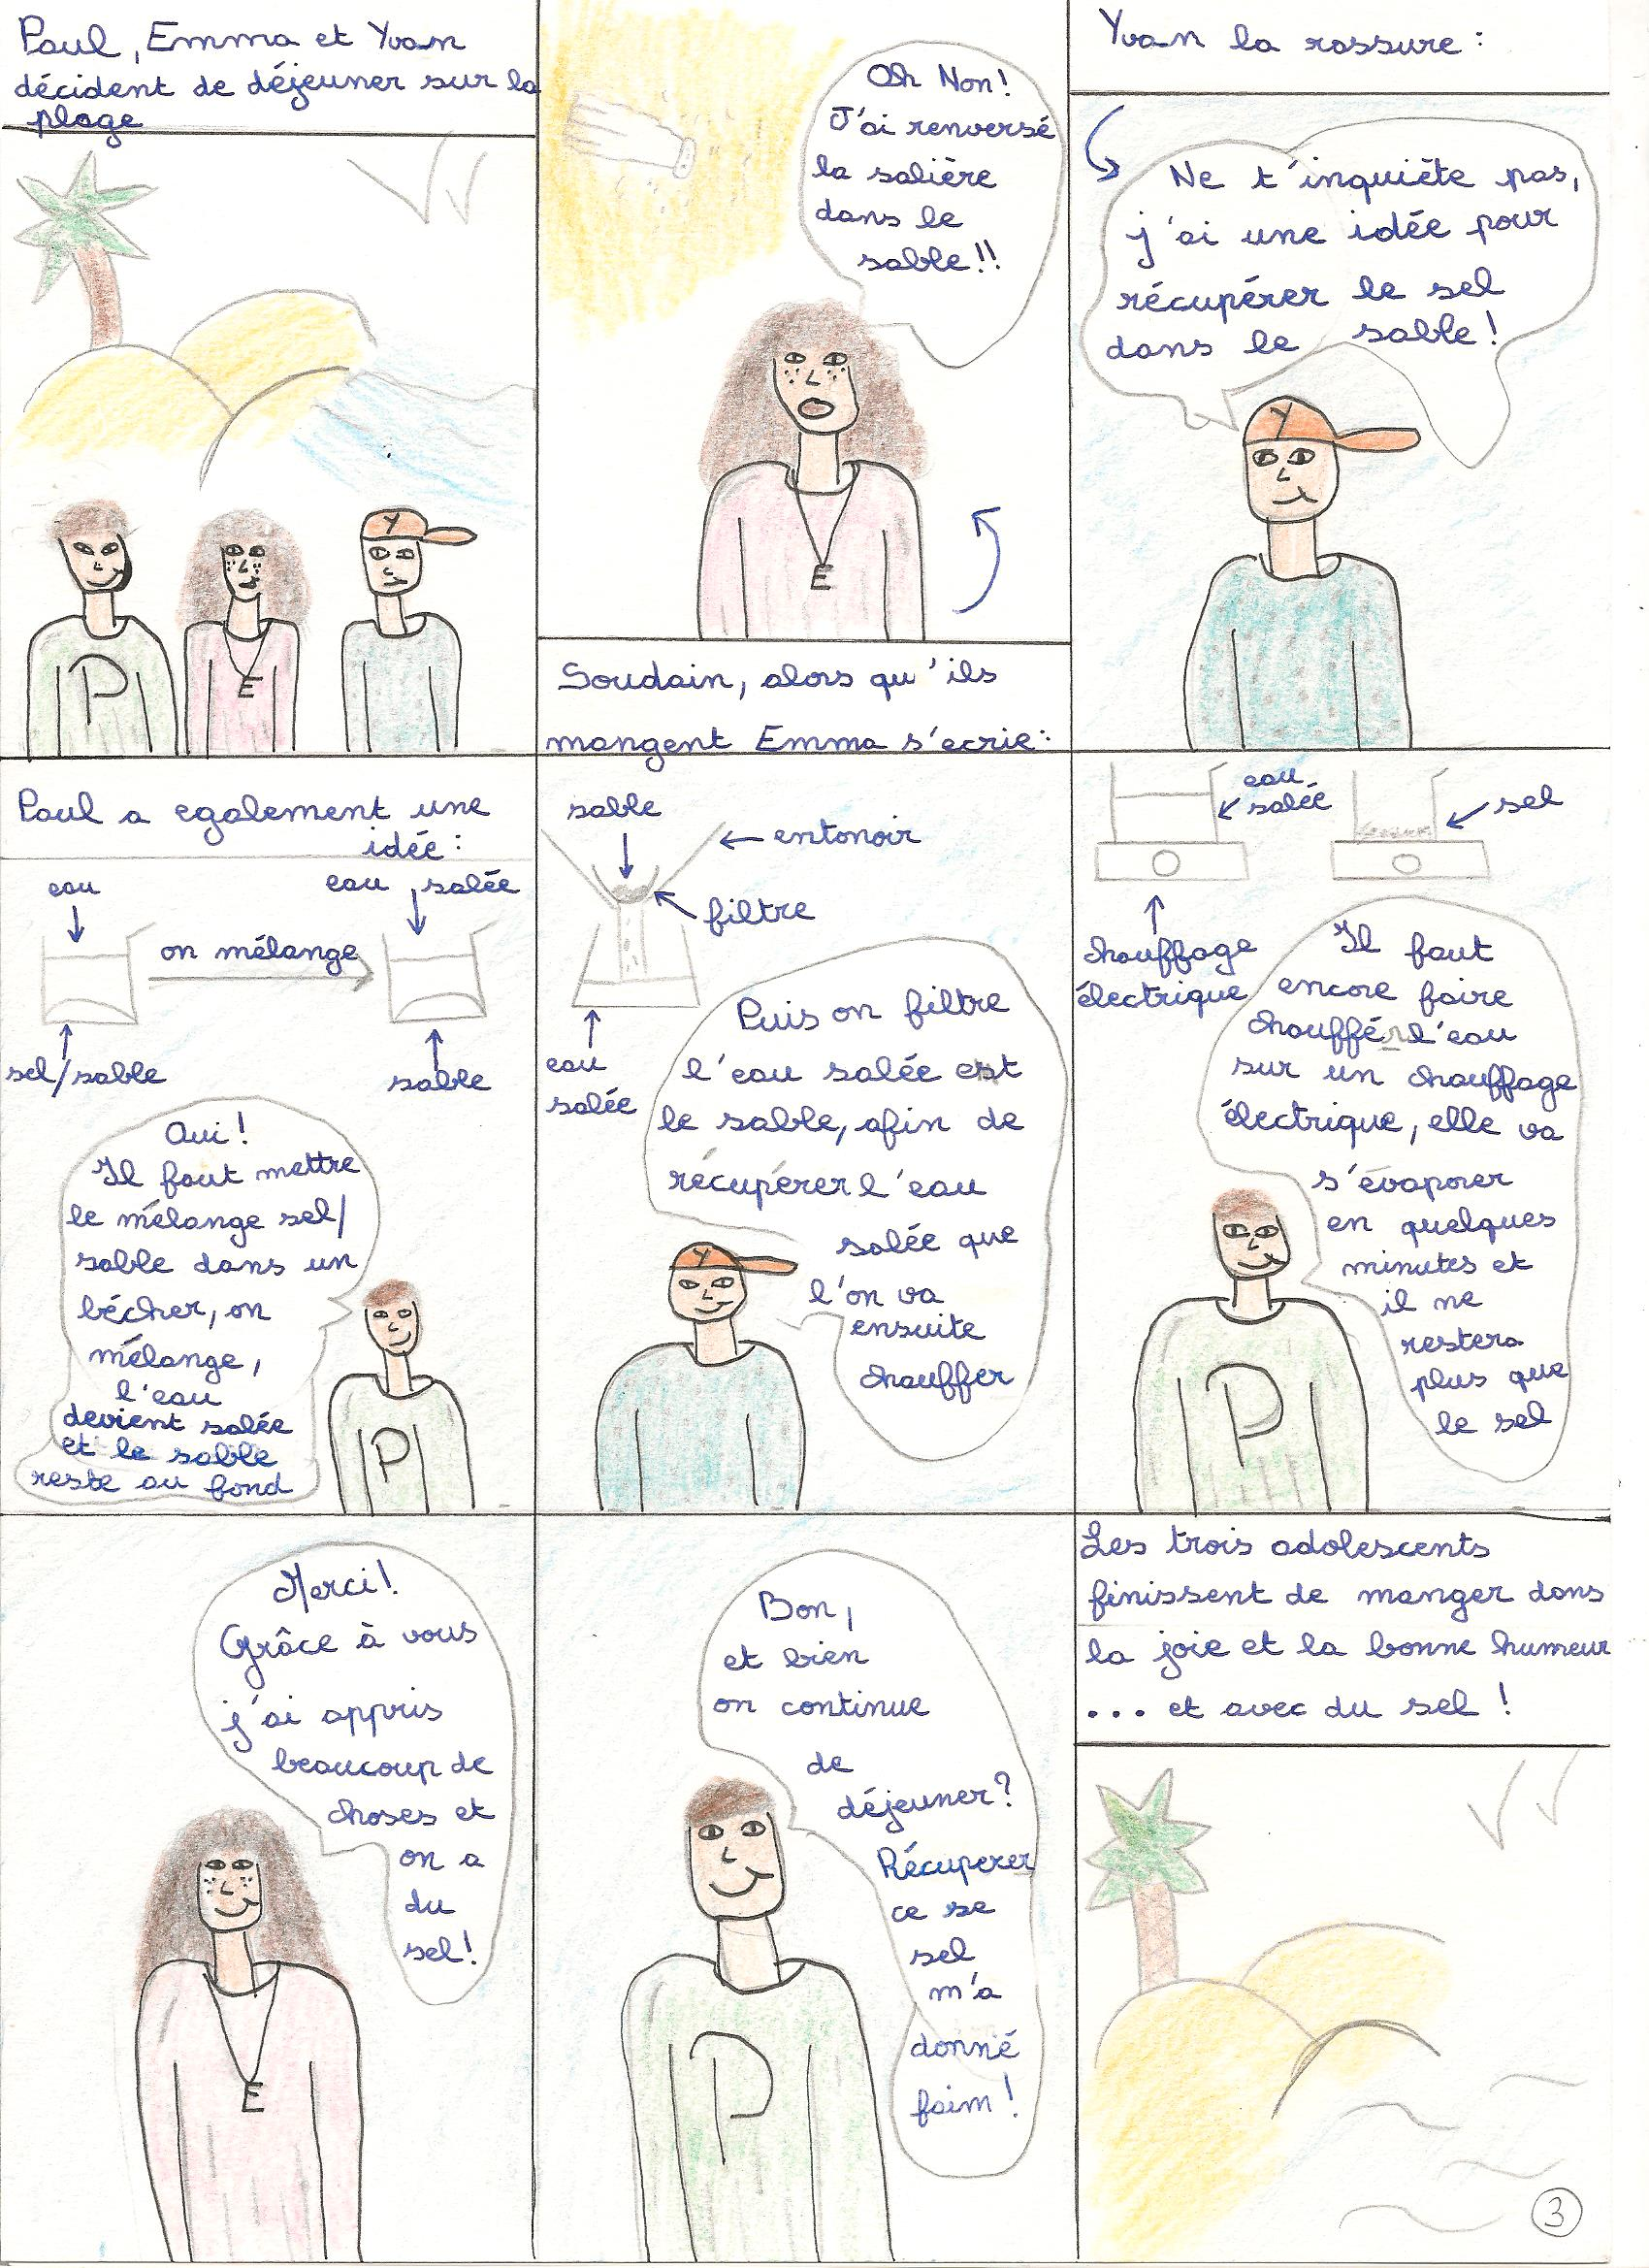 Paul, Emma et Yvan
décident de déjeuner sur la
plage
P
E
Y
Oh Non!
J'ai renversé
la salière
dans le
sable!!
E
Soudain, alors qu'ils
mangent Emma s'ecrie:
Yvan la rassure:
Ne t'inquiète pas,
j'ai une idée pour
récupérer le sel
dans le sable!
Y
Paul a egalement une
idée:
eau
eau salée
on mélange
sel/sable
sable
Oui!
Il faut mettre
le mélange sel/
sable dans un
bécher, on
mélange,
l'eau
devient salée
et le sable
reste au fond
P
sable
entonoir
filtre
eau
salée
Puis on filtre
l'eau salée est
le sable, afin de
récupérer l'eau
salée que
l'on va
ensuite
chauffer
Y
eau
salée
sel
chauffage
électrique
Il faut
encore faire
chauffér l'eau
sur un chauffage
électrique, elle va
s'évaporer
en quelques
minutes et
il ne
restera
plus que
le sel
P
Merci!
Grâce à vous
j'ai appris
beaucoup de
choses et
on a
du
sel!
E
Bon,
et bien
on continue
de
déjeuner?
Récuperer
ce se
sel
m'a
donné
faim!
P
Les trois adolescents
finissent de manger dans
la joie et la bonne humeur
... et avec du sel!
3